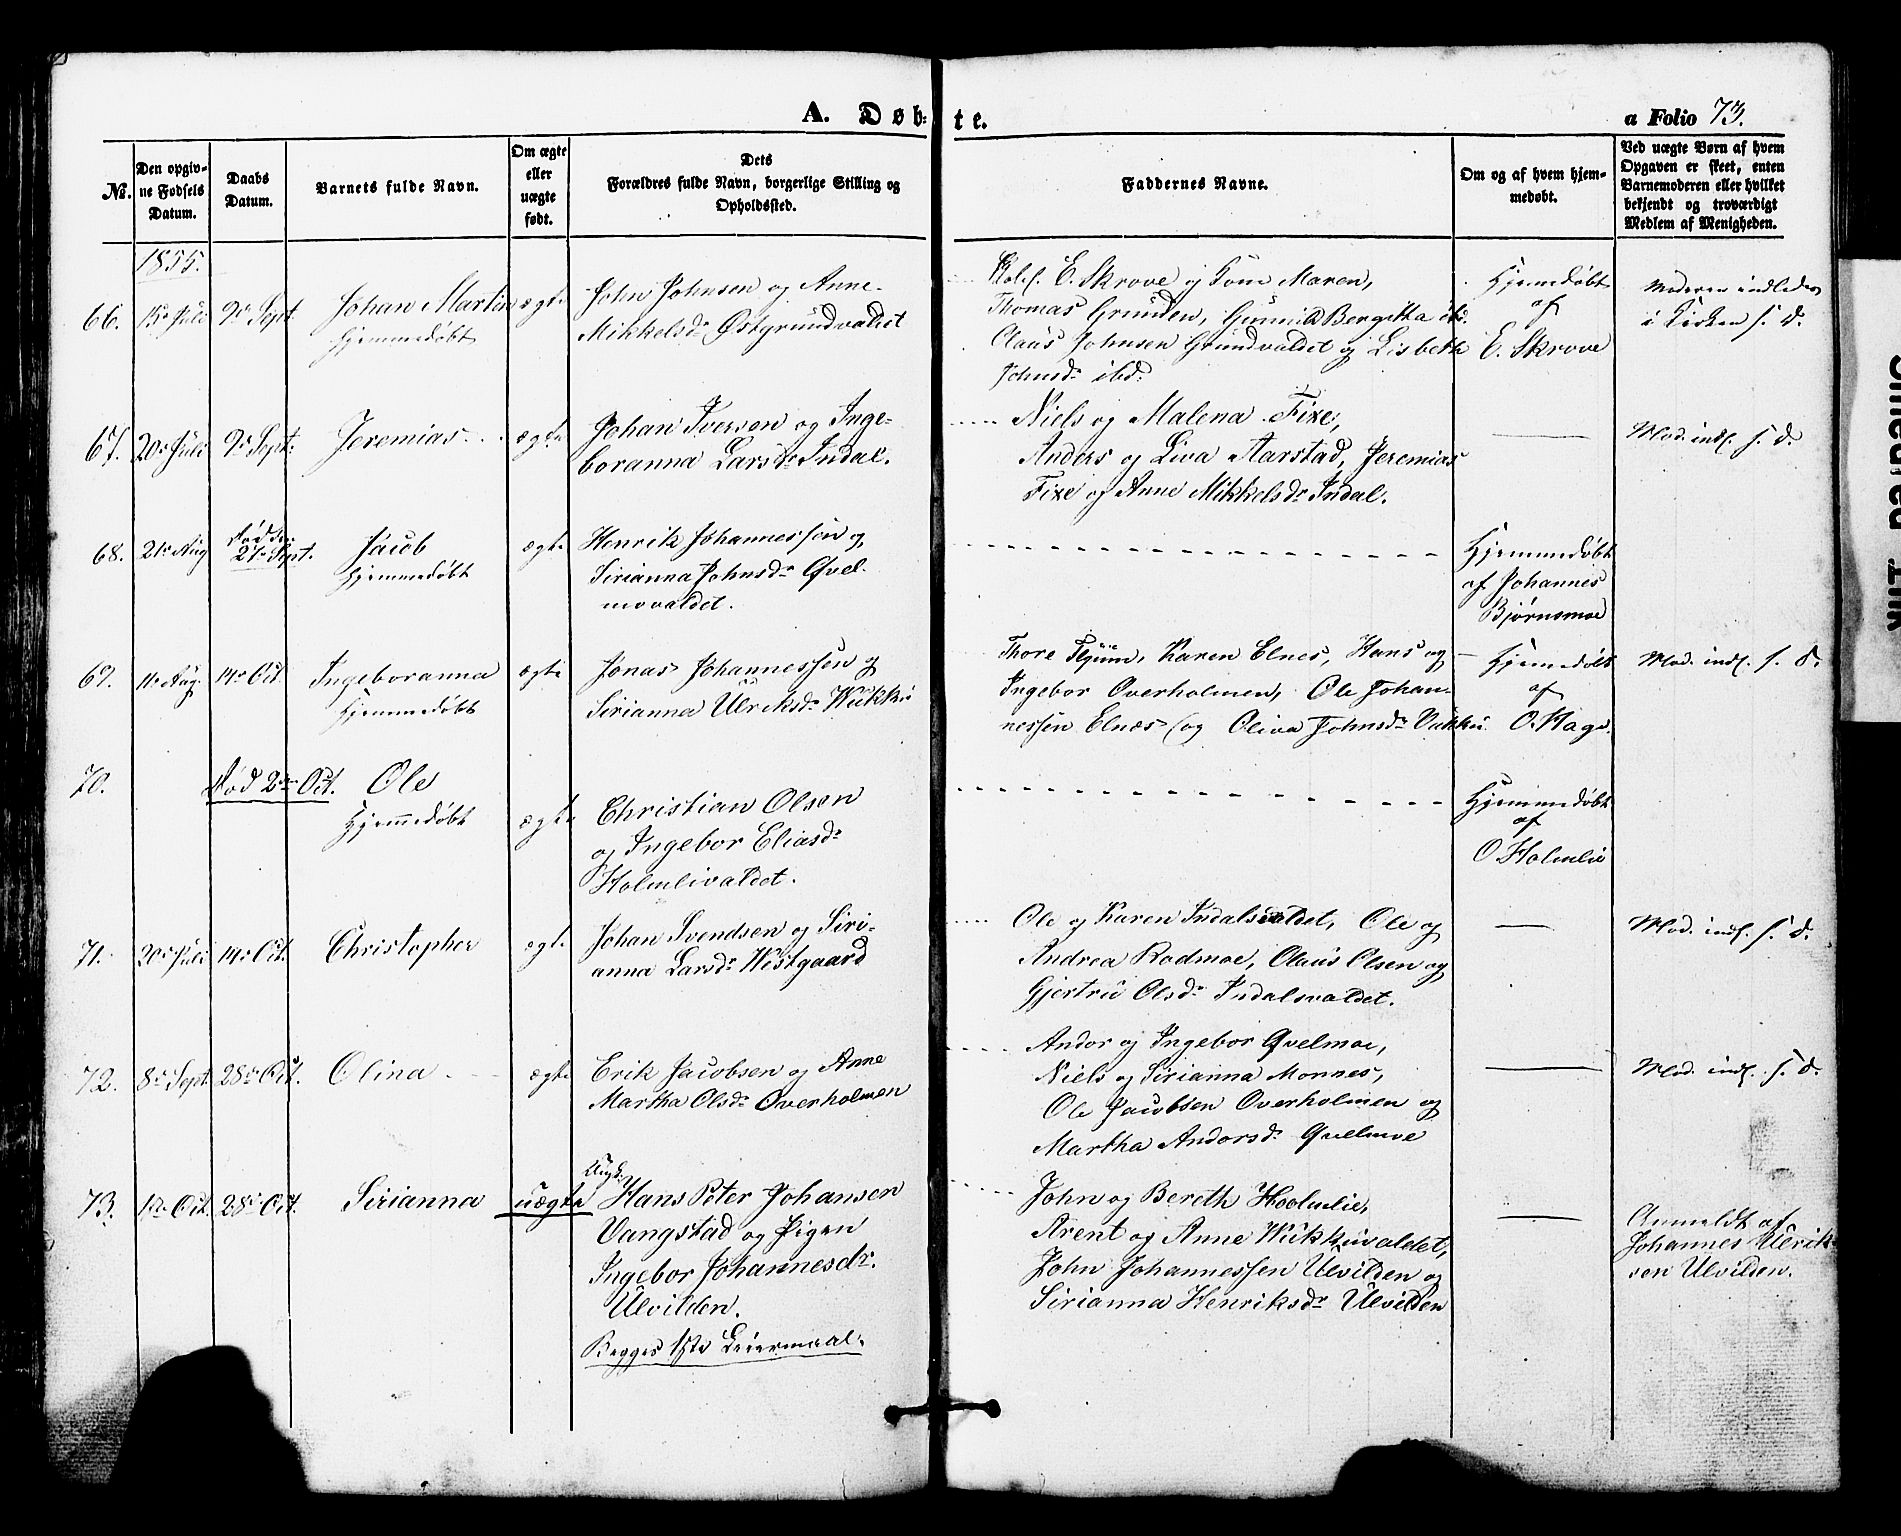 A. Døb-te.
a Folio 73.
No.
Den opgivne Fødsels Datum.
Daabs Datum.
Barnets fulde Navn.
Om ægte eller uægte født.
Dets Forældres fulde Navn, borgerlige Stilling og Opholdssted.
Faddernes Navne.
Om og af hvem hjemmedøbt.
Ved uægte Børn af hvem Opgaven er skeet, enten Barnemoderen eller hvilket bekjendt og troværdigt Medlem af Menigheden.
1855.
66. 15de Juli 9de Sept. Johan Martin ægte John Johnsen og Anne
Hjemmedøbt Mikkelsdr Østgrundvaldet
E. Skrove og Kone Maren,
Thomas Grunden, Bergitta ibd.
Claus Johnsen Grundvaldet og Lisbeth
Johnsdr ibd.
Hjemmedøbt
af
E. Skrove
Moderen indledes
i Kirken s. d.
67. 20de Juli 9de Sept. Jeremias ægte Johan Iversen og Inge-
boranna Larsdr Indal.
Niels og Malena Fixe,
Anders og Liva Aarstad, Jeremias
Fixe og Anne Mikkelsdr Indal.
Mod. indl. s. d.
68. 21de Aug Død den 21de Sept. Jacob ægte Henrik Johannessen og
Hjemmedøbt Sirianna Johnsdr Qvel-
movaldet.
Hjemmedøbt
af Johannes
Bjørnsmoe
69. 11te Aug. 14de Oct. Ingeboranna ægte Jonas Johannessen og
Hjemmedøbt Sirianna Ulriksdr Wukku
Thore Karen Elnes, Hans og
Ingebor Overholmen, Ole Johan-
nessen Elnæs og Oliva Johnsdr Vukku.
Hjemmedøbt
af
O. Hage.
Mod. indl. s. d.
70. Død 2den Oct. Ole
Hjemmedøbt ægte Christian Olsen
og Ingebor Eliasdr
Holmlivaldet.
Hjemmedøbt
af
O Holmlie
71. 20de Juli 14de Oct. Christopher ægte Johan Svendsen og Siri-
anna Larsdr Westgaard
Ole og Karen Indalsvaldet, Ole og
Andrea Rodmoe, Olaus Olsen og
Gjertru Olsdr Indalsvaldet.
Mod. indl. s. d.
72. 8de Sept. 28de Oct. Olina ægte Erik Jacobsen og Anne
Martha Olsdr Overholmen
Andor og Ingebor Qvelmoe,
Niels og Sirianna Mönnes,
Ole Jacobsen Overholmen og
Martha Andorsdr Qvelmoe
Mod. indl. s. d.
73. 1ste Oct. 28de Oct. Sirianna uægte Ungk. Hans Peter Johansen
Vangstad og Pigen
Ingebor Johannesdr.
Ulvilden.
Begges 1ste Leiermaal.
John og Bereth Hoolmlie,
Arent og Anne Wukkuvaldet,
John Johannessen Ulvilden og
Sirianna Henriksdr Ulvilden
Anmeldt af
Johannes Ulrik-
sen Ulvilden.